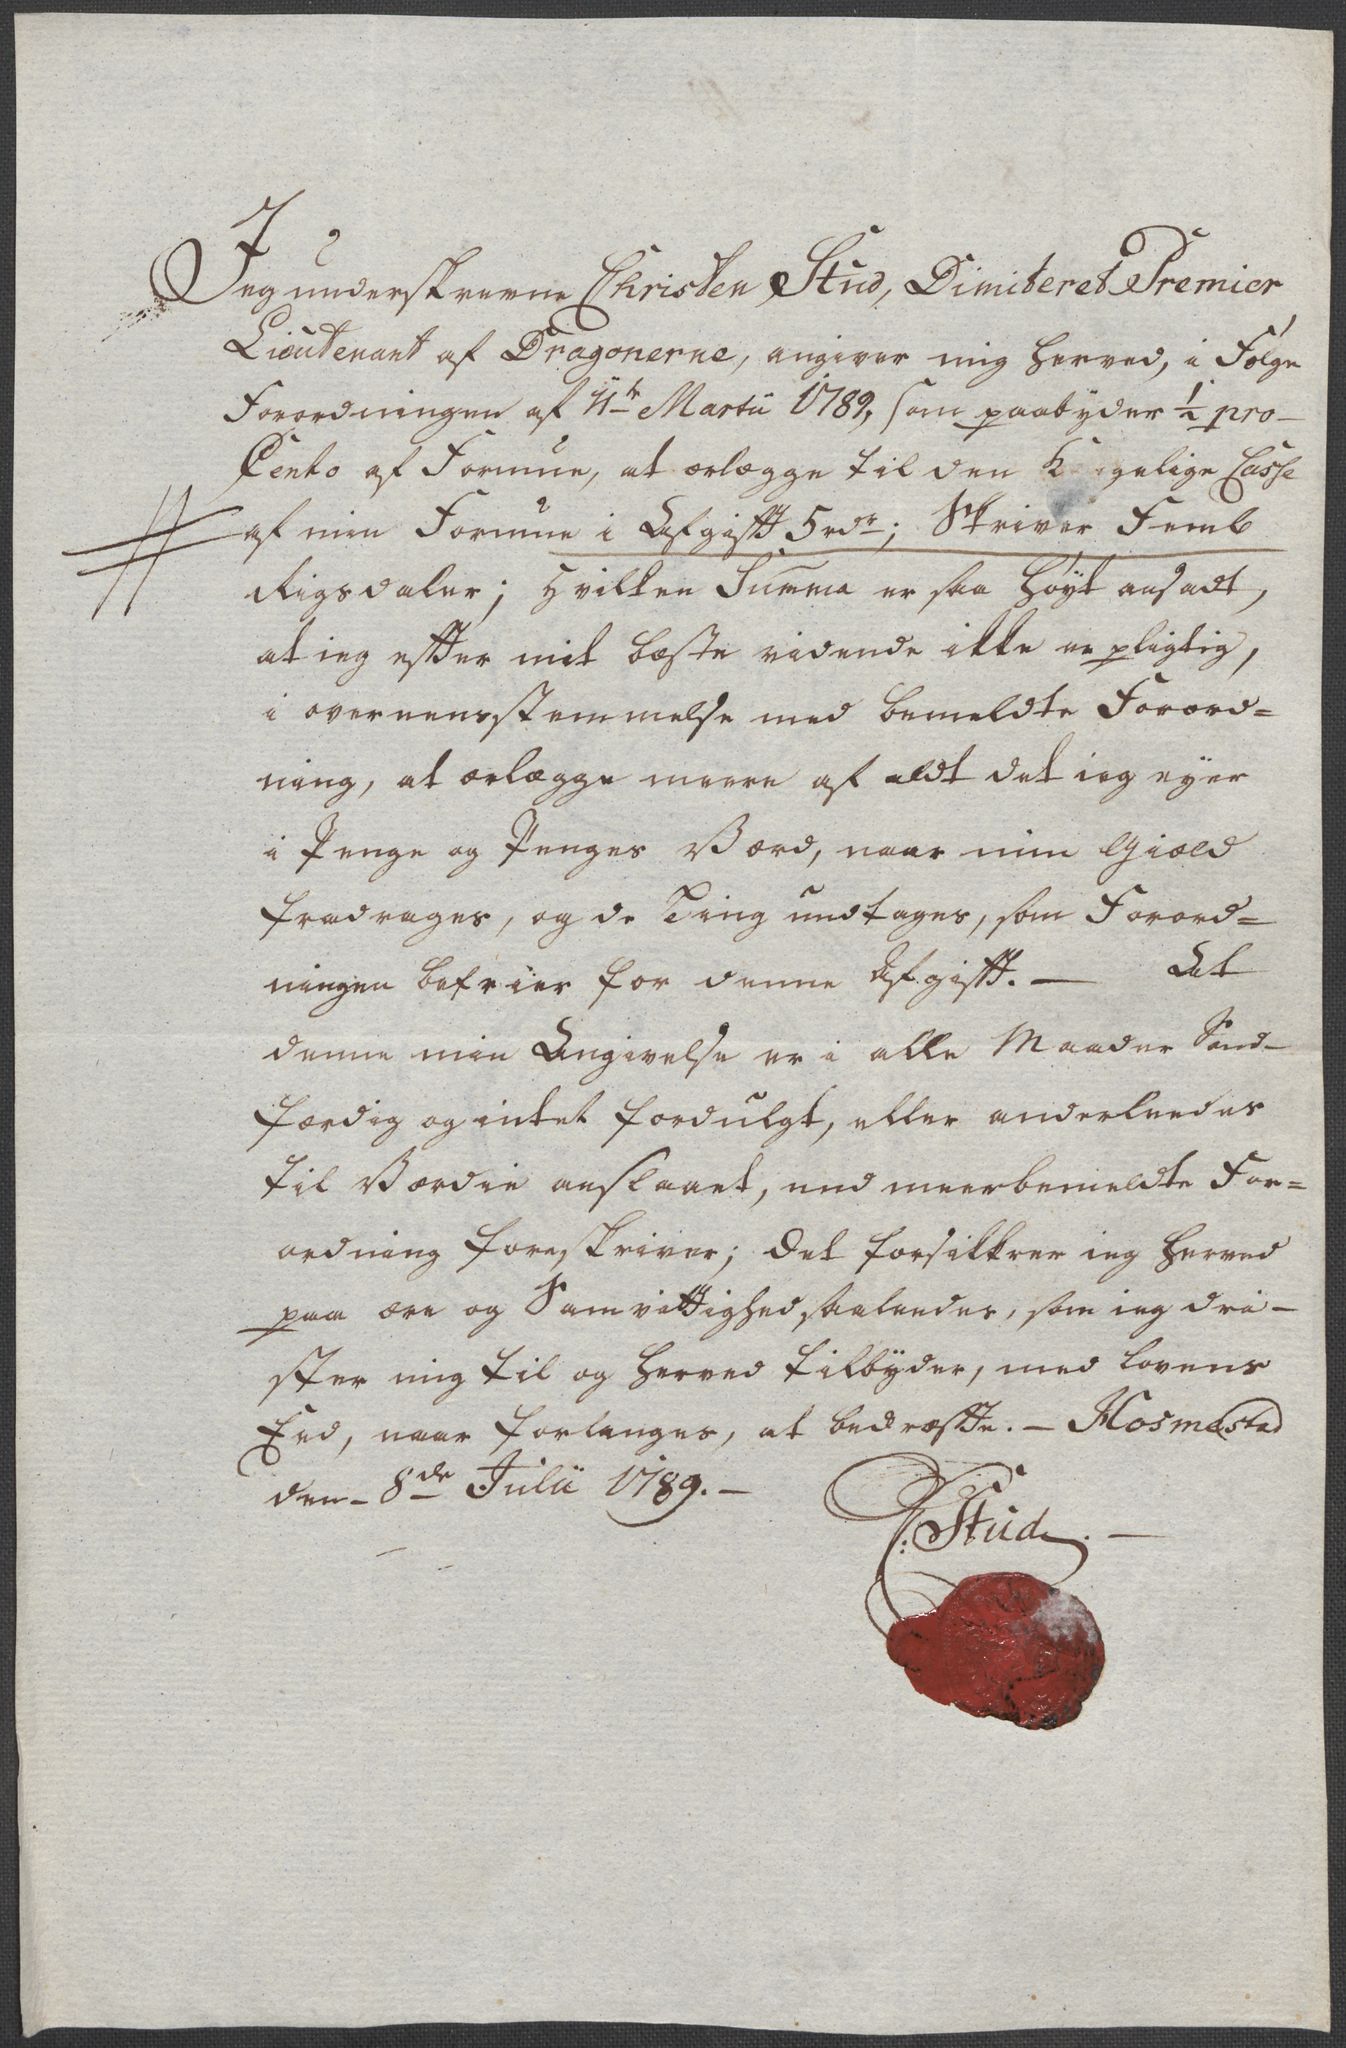 Jeg underskrevne Christen Stud, Dimiteret Premier
Lieutenant af Dragonerne, angiver mig herved, i Følge
Forordningen af 11te Martii 1789, som paabyder ½ pro-
Cento af Formue, at erlægge til den K gelige Casse
af min Formue i Afgifft 5 rdr; Skriver Femb
Rigsdaler; hvilken Summa er saa høyt ansadt,
at ieg effter mit beste vidende ikke er pligtig,
i overeensstemmelse med bemeldte Forord=
ning, at erlægge meere af aldt det ieg eyer
i Penge og Penges Værd, naar min Giæld
fradrages, og de Ting undtages, som Forord=
ningen befrier for denne Afgifft. — At
denne min Angivelse er i alle Maader Sand-
færdig og intet fordulgt, eller anderleedes
til Værdie anslaaet, end meerbemeldte For=
ordning foreskriver; det forsikkrer ieg herved
paa ære og Samvittighed saaleedes, som ieg dri-
ster mig til og herved tilbyder, med lovens
Eed, naar forlanges, at bekræffte. — Hosmestad
den - 8de Julii 1789. —
C: Stud. —